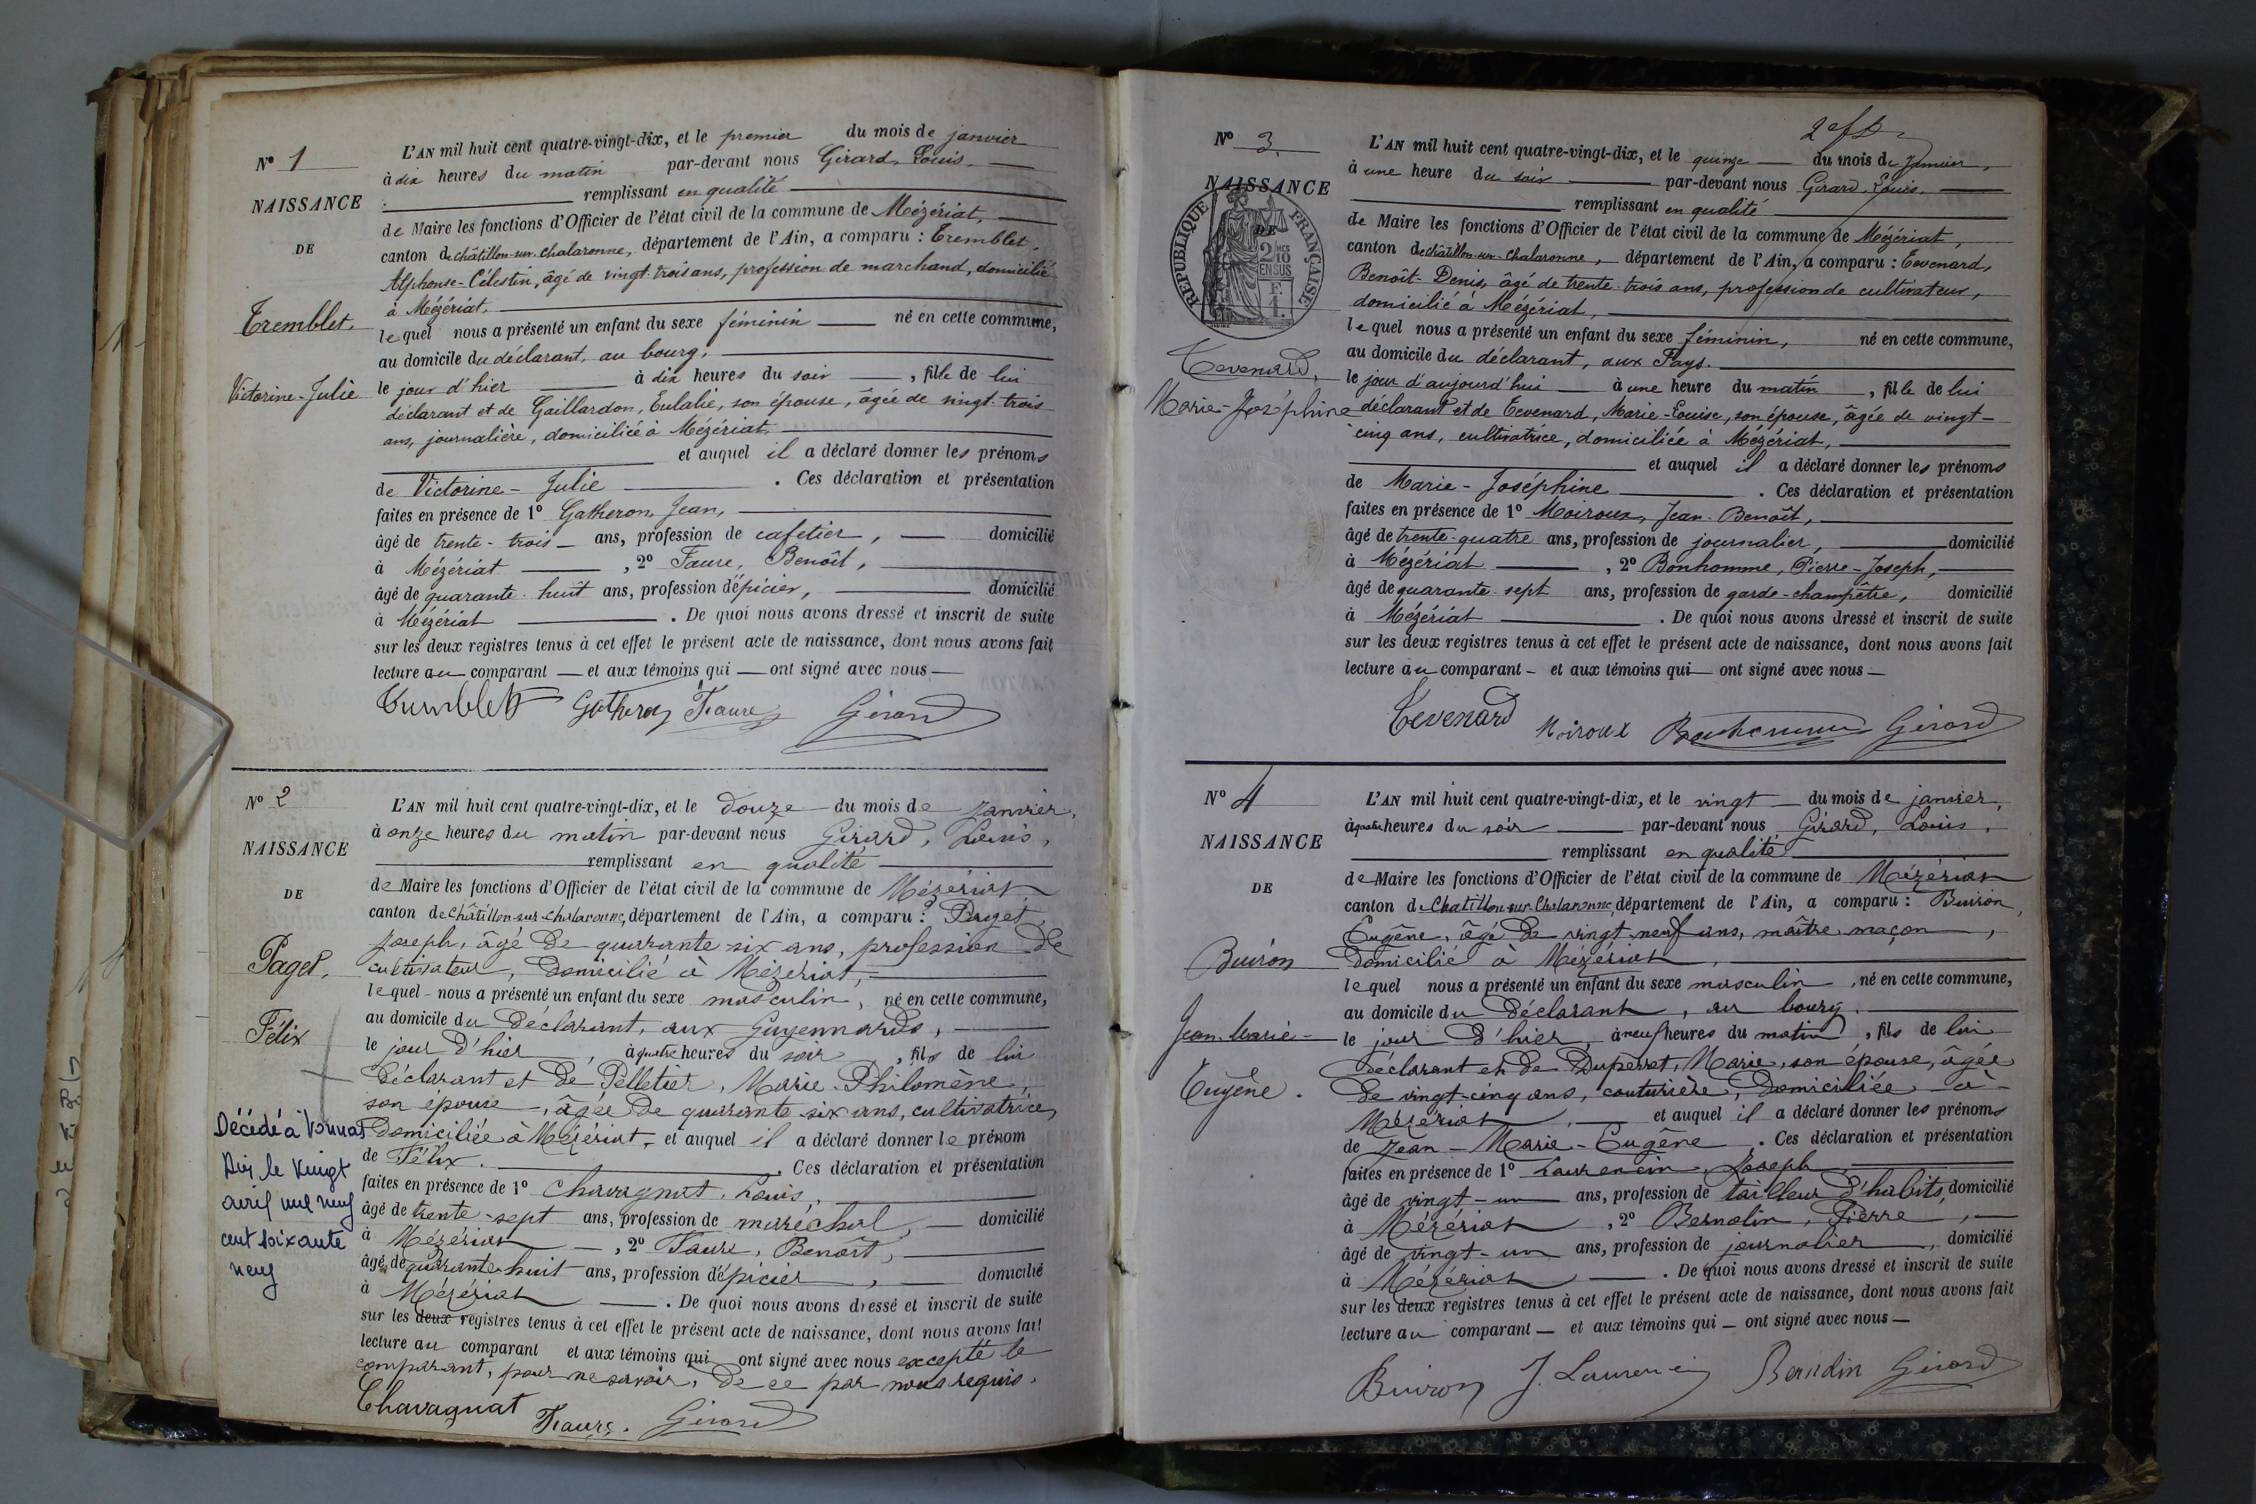 N° 1
NAISSANCE
DE
Tremblet,
Victorine-Julie
L'AN mil huit cent quatre-vingt-dix, et le premier du mois de janvier
à dix heures du matin par-devant nous Girard, Louis,
remplissant en qualité
de Maire les fonctions d'Officier de l'état civil de la commune de Mézériat,
canton de Châtillon-sur-Chalaronne, département de l'Ain, a comparu : Tremblet,
Alphonse-Célestin, âgé de vingt-trois ans, profession de marchand, domicilié
à Mézériat,
lequel nous a présenté un enfant du sexe féminin né en cette commune,
au domicile du déclarant, au bourg,
le jour d'hier à dix heures du soir, fille de lui
déclarant et de Gaillardon, Eulalie, son épouse, âgée de vingt-trois
ans, journalière, domiciliée à Mézériat,
et auquel il a déclaré donner les prénoms
de Victorine-Julie. Ces déclaration et présentation
faites en présence de 1° Gatheron, Jean,
âgé de trente-trois ans, profession de cafetier, domicilié
à Mézériat, 2° Faure, Benoît,
âgé de quarante-huit ans, profession d'épicier, domicilié
à Mézériat. De quoi nous avons dressé et inscrit de suite
sur les deux registres tenus à cet effet le présent acte de naissance, dont nous avons fait
lecture au comparant et aux témoins qui ont signé avec nous
Tremblet Gatheron Faure Girard
N° 2
NAISSANCE
DE
Paget,
Félix
Décédé à Vonnas
Ain le vingt
avril mil neuf
cent soixante
neuf
L'AN mil huit cent quatre-vingt-dix, et le douze du mois de janvier,
à onze heures du matin par-devant nous Girard, Louis,
remplissant en qualité
de Maire les fonctions d'Officier de l'état civil de la commune de Mézériat
canton de Châtillon-sur-Chalaronne, département de l'Ain, a comparu : Paget,
Joseph, âgé de quarante-six ans, profession de
cultivateur, domicilié à Mézériat,
lequel nous a présenté un enfant du sexe masculin, né en cette commune,
au domicile du déclarant, aux Guyennards,
le jour d'hier, à quatre heures du soir, fils de lui
déclarant et de Pelletier, Marie-Philomène,
son épouse, âgée de quarante-six ans, cultivatrice,
domiciliée à Mézériat, et auquel il a déclaré donner le prénom
de Félix. Ces déclaration et présentation
faites en présence de 1° Chavagnat, Louis,
âgé de trente-sept ans, profession de maréchal, domicilié
à Mézériat, 2° Faure, Benoît,
âgé de quarante-huit ans, profession d'épicier, domicilié
à Mézériat. De quoi nous avons dressé et inscrit de suite
sur les deux registres tenus à cet effet le présent acte de naissance, dont nous avons fait
lecture au comparant et aux témoins qui ont signé avec nous excepté le
comparant, pour ne savoir, de ce par nous requis.
Chavagnat Faure. Girard
2e f
N° 3
NAISSANCE
DE
RÉPUBLIQUE FRANÇAISE
2/10 MES
EN SUS
F. 1.
Tevenard,
Marie-Joséphine
L'AN mil huit cent quatre-vingt-dix, et le quinze du mois de janvier,
à une heure du soir par-devant nous Girard, Louis,
remplissant en qualité
de Maire les fonctions d'Officier de l'état civil de la commune de Mézériat,
canton de Châtillon-sur-Chalaronne, département de l'Ain, a comparu : Tevenard,
Benoît-Denis, âgé de trente-trois ans, profession de cultivateur,
domicilié à Mézériat,
lequel nous a présenté un enfant du sexe féminin, né en cette commune,
au domicile du déclarant, aux Pays.
le jour d'aujourd'hui à une heure du matin, fille de lui
déclarant et de Tevenard, Marie-Louise, son épouse, âgée de vingt-
cinq ans, cultivatrice, domiciliée à Mézériat,
et auquel il a déclaré donner les prénoms
de Marie-Joséphine. Ces déclaration et présentation
faites en présence de 1° Moiroux, Jean-Benoît,
âgé de trente-quatre ans, profession de journalier, domicilié
à Mézériat, 2° Bonhomme, Pierre-Joseph,
âgé de quarante-sept ans, profession de garde-champêtre, domicilié
à Mézériat. De quoi nous avons dressé et inscrit de suite
sur les deux registres tenus à cet effet le présent acte de naissance, dont nous avons fait
lecture au comparant - et aux témoins qui ont signé avec nous
Tevenard Moiroux Bonhomme Girard
N° 4
NAISSANCE
DE
Buiron
Jean-Marie-
Eugène.
L'AN mil huit cent quatre-vingt-dix, et le vingt du mois de janvier,
à quatre heures du soir par-devant nous Girard, Louis,
remplissant en qualité
de Maire les fonctions d'Officier de l'état civil de la commune de Mézériat
canton de Châtillon-sur-Chalaronne, département de l'Ain, a comparu : Buiron,
Eugène, âgé de vingt-neuf ans, maître maçon,
domicilié à Mézériat,
lequel nous a présenté un enfant du sexe masculin, né en cette commune,
au domicile du déclarant, au bourg.
le jour d'hier, à neuf heures du matin, fils de lui
déclarant et de Duperrat, Marie, son épouse, âgée
de vingt-cinq ans, couturière, domiciliée à
Mézériat, et auquel il a déclaré donner les prénoms
de Jean-Marie-Eugène. Ces déclaration et présentation
faites en présence de 1° Laurencin, Joseph,
âgé de vingt-un ans, profession de tailleur d'habits, domicilié
à Mézériat, 2° Bernolin, Pierre,
âgé de vingt-un ans, profession de journalier, domicilié
à Mézériat. De quoi nous avons dressé et inscrit de suite
sur les deux registres tenus à cet effet le présent acte de naissance, dont nous avons fait
lecture au comparant — et aux témoins qui — ont signé avec nous —
Buiron J. Laurencin Girard